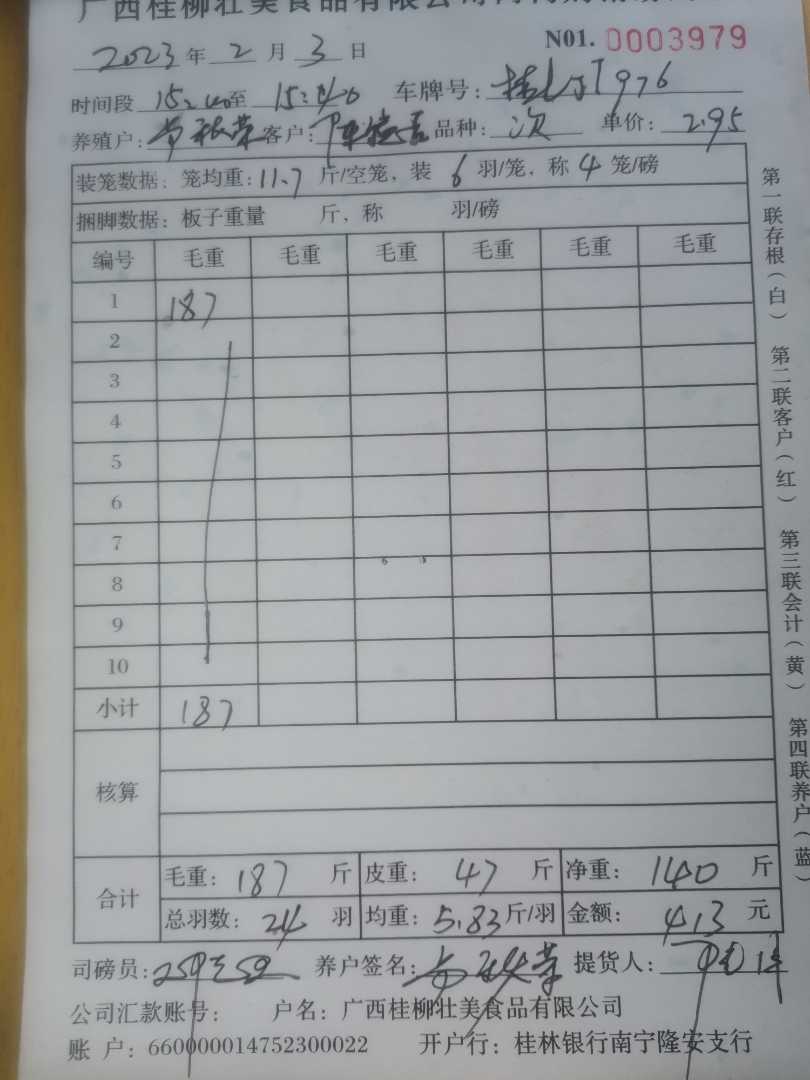 广西桂柳壮美食品有限公司
2023年2月3日 N01. 0003979
时间段 15:40至 15:40 车牌号: 976
养殖户: 荣 客户: 品种: 次 单价: 2.95
装笼数据: 笼均重: 11.7 斤/空笼, 装 6 羽/笼, 称 4 笼/磅
捆脚数据: 板子重量 斤, 称 羽/磅
编号 毛重 毛重 毛重 毛重 毛重 毛重
1 187
2
3
4
5
6
7
8
9
10
小计 187
核算
合计 毛重: 187 斤 皮重: 47 斤 净重: 140 斤
总羽数: 24 羽 均重: 5.83 斤/羽 金额: 413 元
司磅员: 养户签名: 荣 提货人:
公司汇款账号: 户名: 广西桂柳壮美食品有限公司
账 户: 660000014752300022 开户行: 桂林银行南宁隆安支行
第一联存根(白) 第二联客户(红) 第三联会计(黄) 第四联养户(蓝)